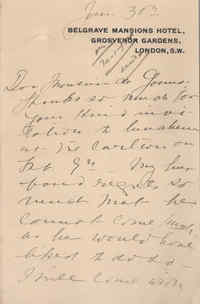 June 30th
BELGRAVE MANSIONS HOTEL,
GROSVENOR GARDENS,
LONDON, S.W.
Dear Monsieur de
Thanks so much for
your kind invi-
tation to luncheon
at the Carlton on
My hus-
band regrets so
much that he
cannot come much
as he would have
liked to do so -
I will come with